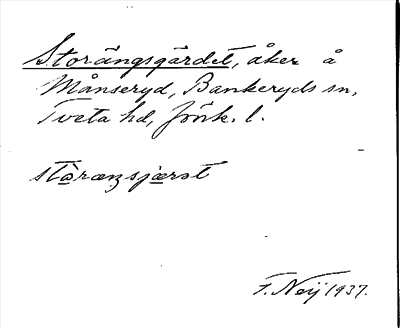 Storängsgärdet, åker å
Månseryd, Bankeryds sn,
Tveta hd, Jönk. l.
stòræŋsjærət
F. Neij 1937.